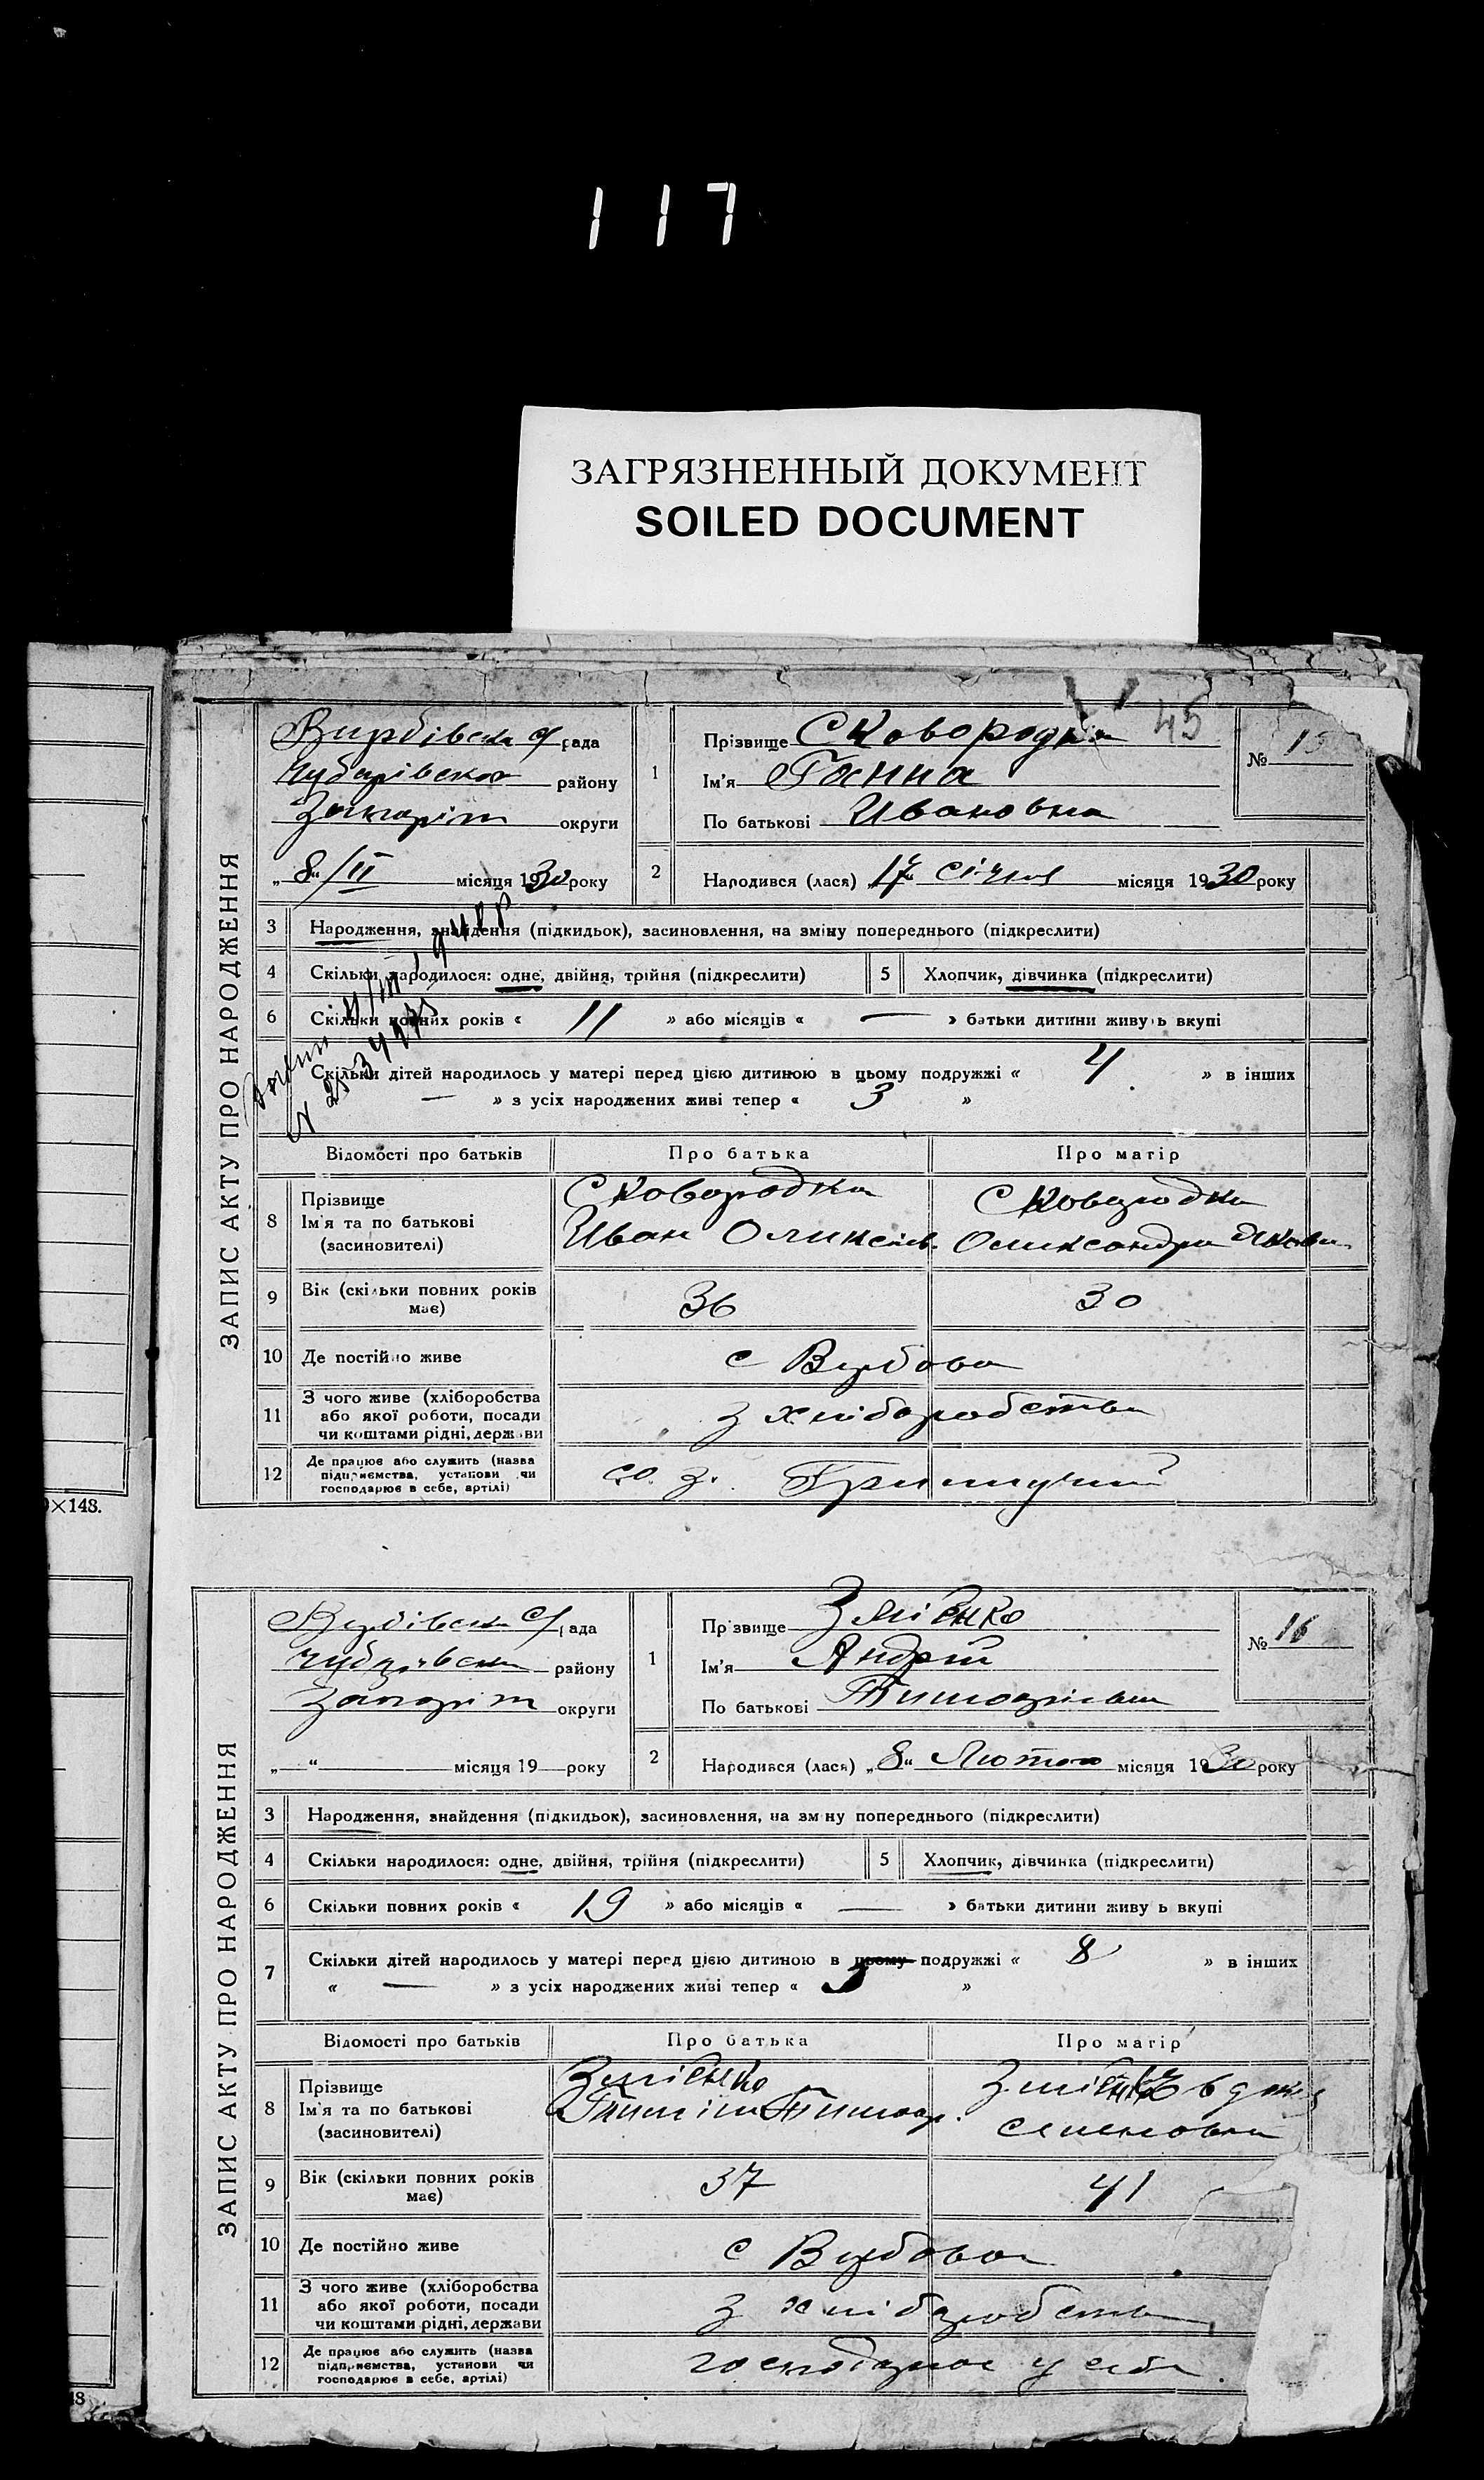 117
ЗАГРЯЗНЕННЫЙ ДОКУМЕНТ
SOILED DOCUMENT
ЗАПИС АКТУ ПРО НАРОДЖЕННЯ
рада
району
округи
„8“/II місяця 1930 року
45
1 Прізвище Сковородка
Ім'я Ганна
По батькові Ивановна
№ 15
2 Народився (лася) „17“ січня місяця 1930 року
3 Народження, знайдення (підкидьок), засиновлення, на зміну попереднього (підкреслити)
4 Скільки народилося: одне, двійня, трійня (підкреслити)
5 Хлопчик, дівчинка (підкреслити)
6 Скільки повних років « 11 » або місяців « — » батьки дитини живуть вкупі
Скільки дітей народилось у матері перед цією дитиною в цьому подружжі « 4 » в інших
— » з усіх народжених живі тепер « 3 »
Відомості про батьків Про батька Про матір
8 Прізвище Сковородка Сковородка
Ім'я та по батькові Иван Олександ
(засиновителі)
9 Вік (скільки повних років має) 36 30
10 Де постійно живе с Вербова
11 З чого живе (хліборобства або якої роботи, посади чи коштами рідні, держави з хліборобства
12 Де працює або служить (назва підприємства, установи чи господарює в себе, артілі)
×148.
ЗАПИС АКТУ ПРО НАРОДЖЕННЯ
рада
району
округи
„—“ місяця 19 — року
1 Прізвище Змієнко
Ім'я Андрій
По батькові
№ 16
2 Народився (лася) „8“ Лютого місяця 1930 року
3 Народження, знайдення (підкидьок), засиновлення, на зміну попереднього (підкреслити)
4 Скільки народилося: одне, двійня, трійня (підкреслити)
5 Хлопчик, дівчинка (підкреслити)
6 Скільки повних років « 19 » або місяців « — » батьки дитини живуть вкупі
7 Скільки дітей народилось у матері перед цією дитиною в цьому подружжі « 8 » в інших
« — » з усіх народжених живі тепер « 3 »
Відомості про батьків Про батька Про матір
8 Прізвище Змієнко
Ім'я та по батькові
(засиновителі)
9 Вік (скільки повних років має) 37 41
10 Де постійно живе с Вербова
11 З чого живе (хліборобства або якої роботи, посади чи коштами рідні, держави з хліборобства
12 Де працює або служить (назва підприємства, установи чи господарює в себе, артілі) господарює у себе